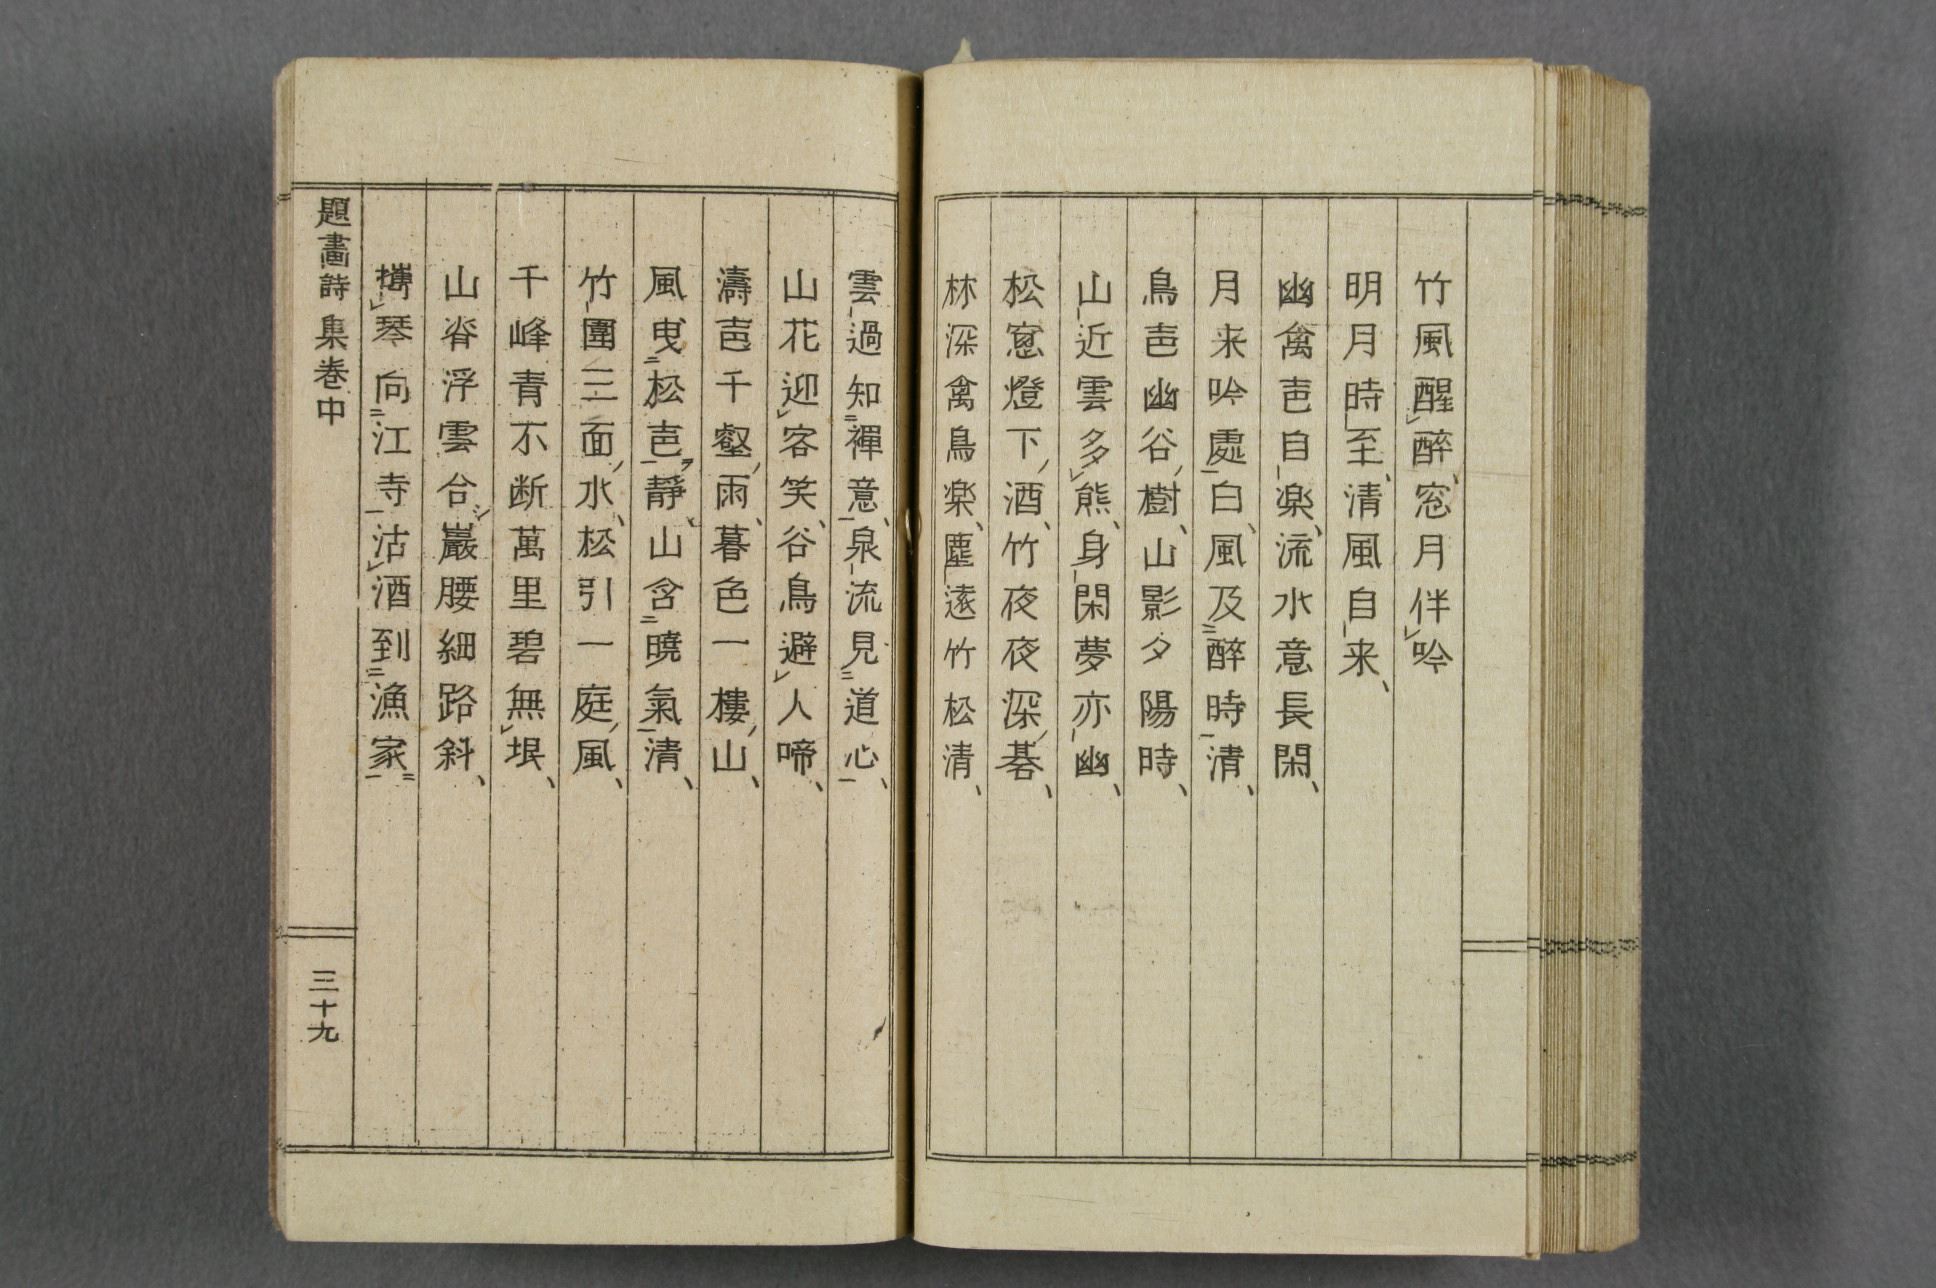 竹風醒醉、窓月伴吟
明月時至、清風自来、
幽禽声自楽、流水意長閑、
月来吟處白、風及醉時清、
鳥声幽谷樹、山影夕陽時、
山近雲多熊、身閑夢亦幽、
松窓燈下酒、竹夜夜深碁、
林深禽鳥楽、塵遠竹松清、
雲過知禪意、泉流見道心、
山花迎客笑、谷鳥避人啼、
濤声千壑雨、暮色一樓山、
風曳松声靜、山含曉氣清、
竹圍三面水、松引一庭風、
千峰青不断萬里碧無垠、
山脊浮雲合巖腰細路斜、
携琴向江寺沽酒到漁家
題畫詩集卷中
三十九